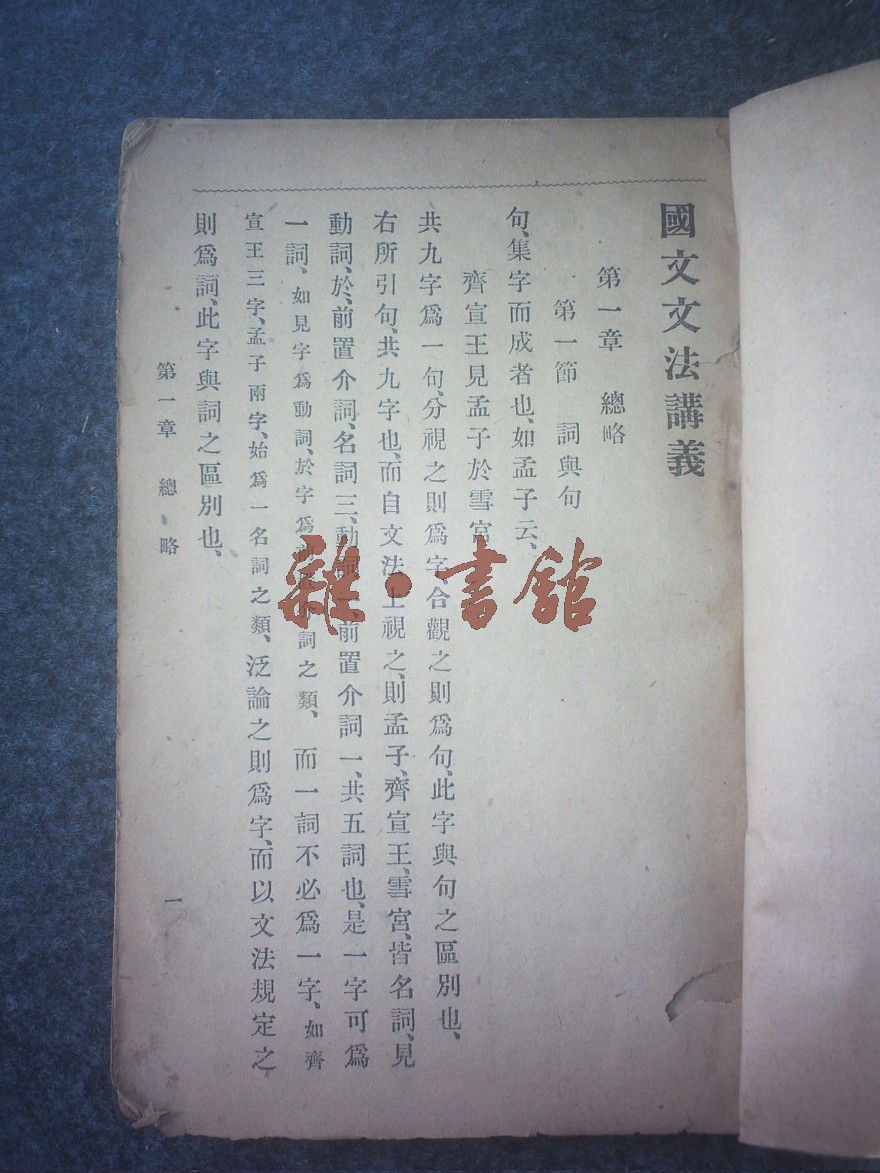 國文文法講義
第一章　總略
第一節　詞與句
句、集字而成者也、如孟子云、
齊宣王見孟子於雪宮
共九字爲一句、分視之則爲字、合觀之則爲句、此字與句之區別也、
右所引句、共九字也、而自文法上視之、則孟子、齊宣王、雪宮、皆名詞、見
動詞、於、前置介詞、名詞三、動詞一、前置介詞一、共五詞也、是一字可爲
一詞、如見字爲動詞、於字爲前置介詞之類、而一詞不必爲一字、如齊
宣王三字、孟子兩字、始爲一名詞之類、泛論之則爲字、而以文法規定之
則爲詞、此字與詞之區別也、
第一章　總略
一
雜·書館